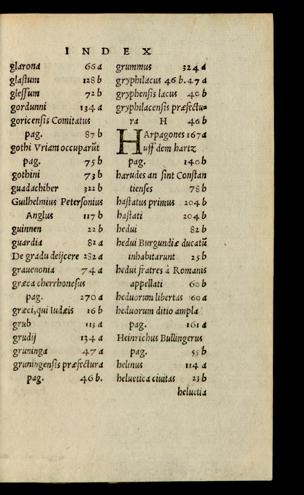 INDEX
glarona 66 a
glastum 128 b
glessum 72 b
gordunni 134 a
goricensis Comitatus
pag. 87 b
gothi Vriam occuparũt
pag. 75 b
gothini 73 b
guadachiber 322 b
Guilhelmius Petersonius
Anglus 117 b
guinnen 22 b
guardia 82 a
De gradu deijcere 282 a
grauenonia 74 a
græca cherrhonesus
pag. 270 a
græci, qui Iudæis 16 b
grub 113 a
grudij 134 a
gruninga 47 a
gruningensis præfectura
pag. 46 b.
grummus 324 a
gryphilacus 46 b. 47 a
gryphensis lacus 40 b
gryphilacensis præfectu-
ra H 46 b
HArpagones 167 a
Huff dem hartz
pag. 140 b
harudes an sint Constan
tienses 78 b
hastatus primus 204 b
hastati 204 b
hedui 82 b
hedui Burgundiæ ducatũ
inhabitarunt 25 b
hedui fratres à Romanis
appellati 60 b
heduorum libertas 60 a
heduorum ditio ampla
pag. 161 a
Heinrichus Bullingerus
pag. 55 b
helinus 114 a
heluetica ciuitas 23 b
heluetia